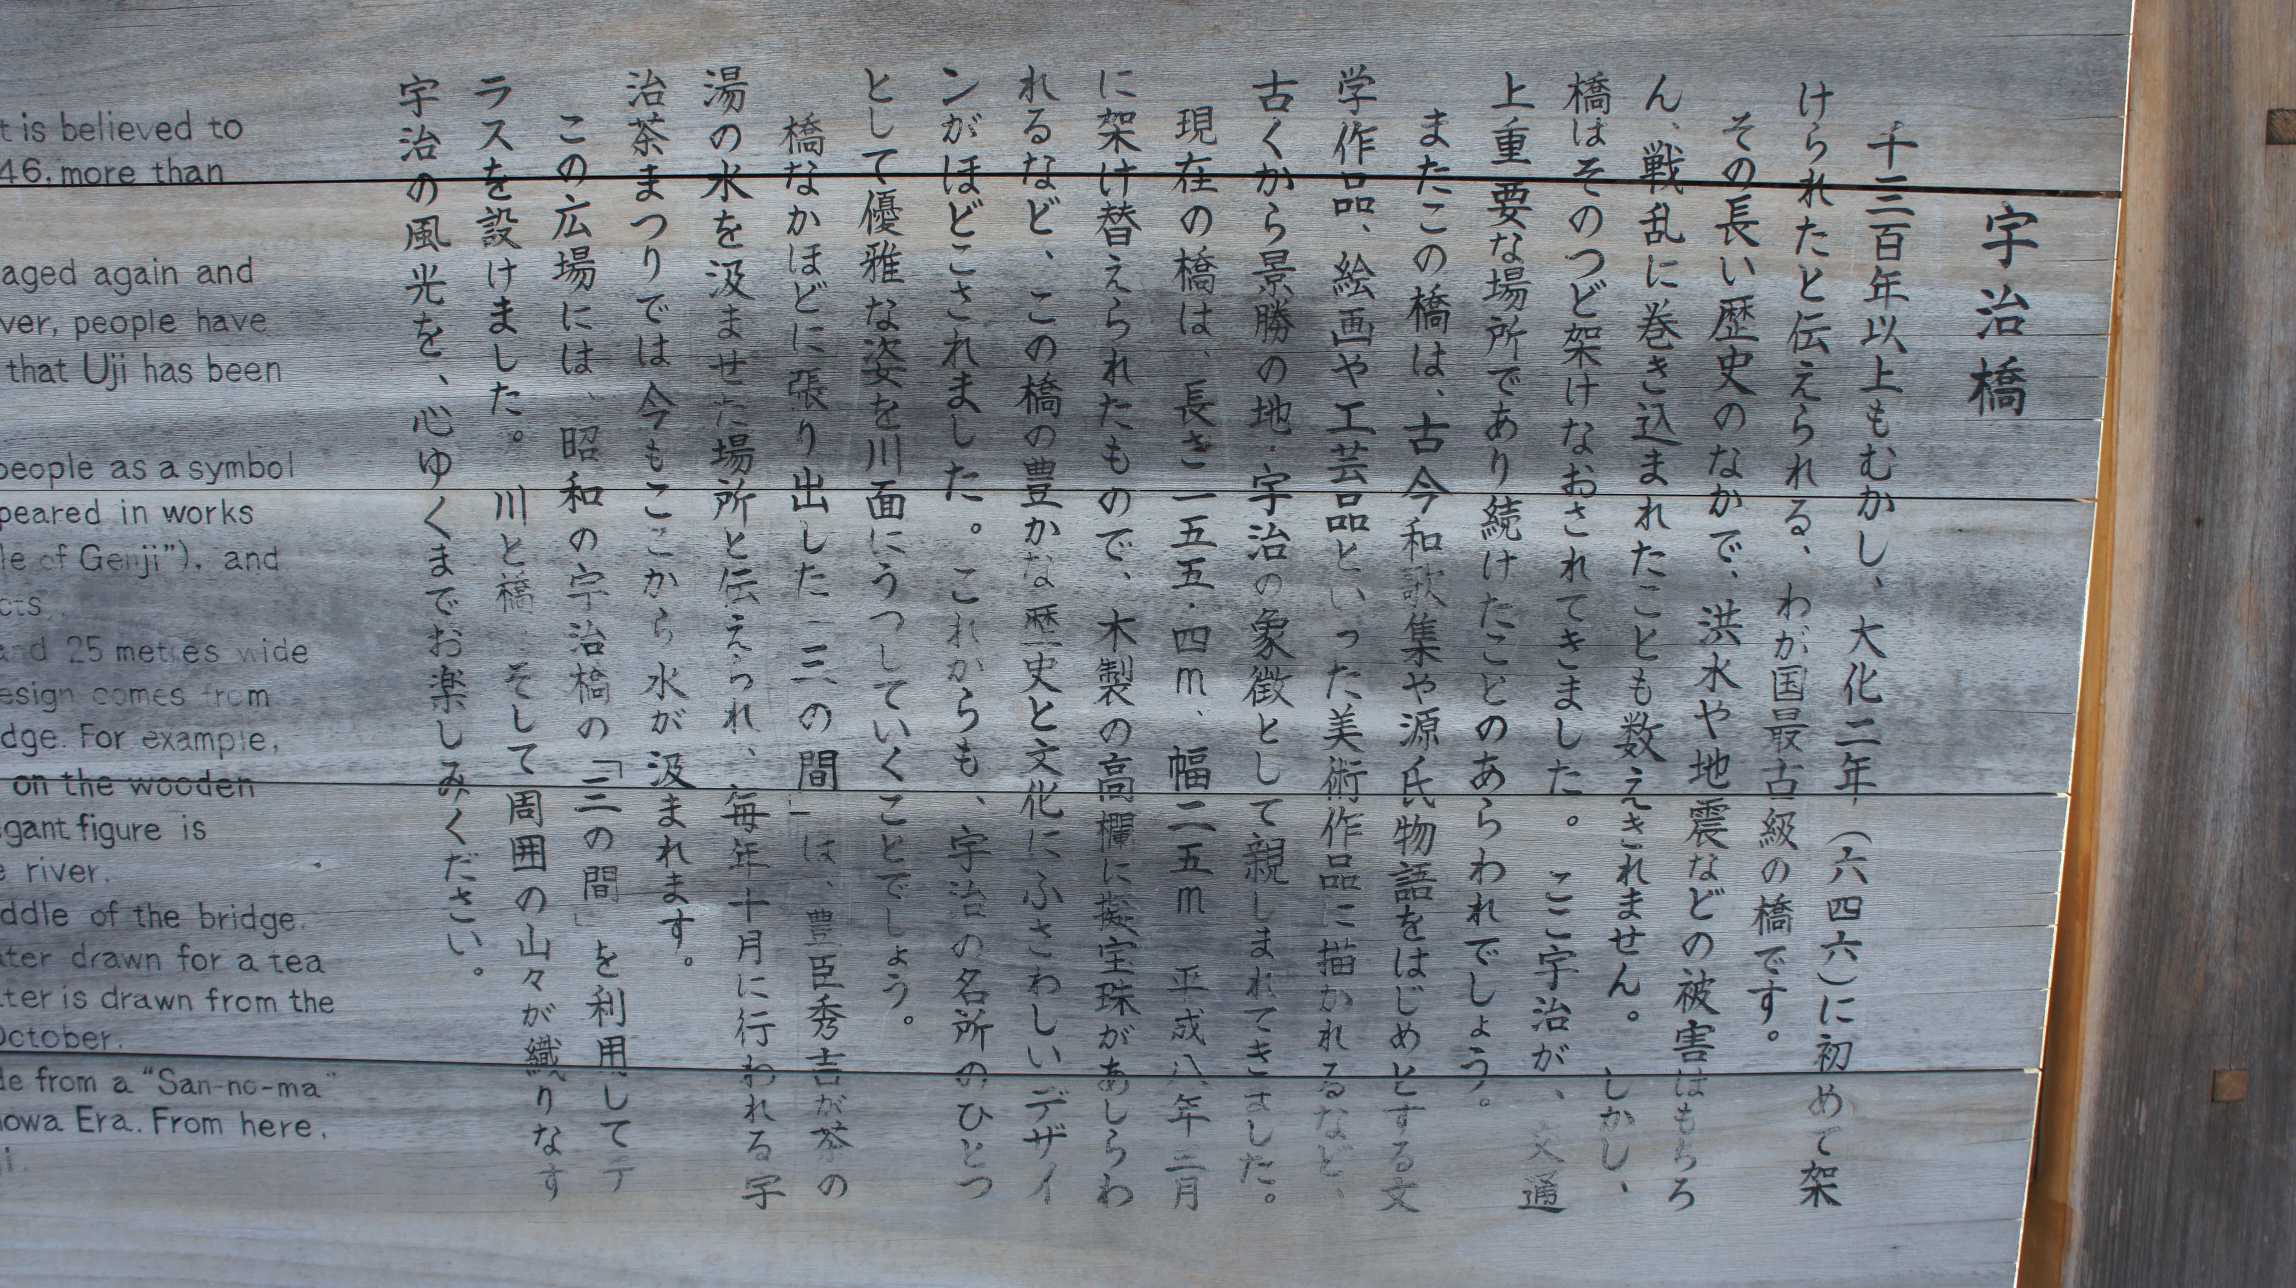 宇治橋
千三百年以上もむかし、大化二年（六四六）に初めて架
けられたと伝えられる、わが国最古級の橋です。
その長い歴史のなかで、洪水や地震などの被害はもちろ
ん、戦乱に巻き込まれたことも数えきれません。しかし、
橋はそのつど架けなおされてきました。ここ宇治が、交通
上重要な場所であり続けたことのあらわれでしょう。
またこの橋は、古今和歌集や源氏物語をはじめとする文
学作品、絵画や工芸品といった美術作品に描かれるなど、
古くから景勝の地・宇治の象徴として親しまれてきました。
現在の橋は、長さ一五五・四m、幅二五m 平成八年三月
に架け替えられたもので、木製の高欄に擬宝珠があしらわ
れるなど、この橋の豊かな歴史と文化にふさわしいデザイ
ンがほどこされました。これからも、宇治の名所のひとつ
として優雅な姿を川面にうつしていくことでしょう。
橋なかほどに張り出した「三の間」は、豊臣秀吉が茶の
湯の水を汲ませた場所と伝えられ、毎年十月に行われる宇
治茶まつりでは今もここから水が汲まれます。
この広場には、昭和の宇治橋の「三の間」を利用してテ
ラスを設けました。川と橋 そして周囲の山々が織りなす
宇治の風光を、心ゆくまでお楽しみください。
t is believed to
46, more than
aged again and
ver, people have
that Uji has been
people as a symbol
peared in works
le of Genji"), and
cts
and 25 metres wide
esign comes from
dge. For example,
on the wooden
gant figure is
e river.
ddle of the bridge.
ater drawn for a tea
ter is drawn from the
October.
de from a "San-no-ma"
howa Era. From here,
ji.